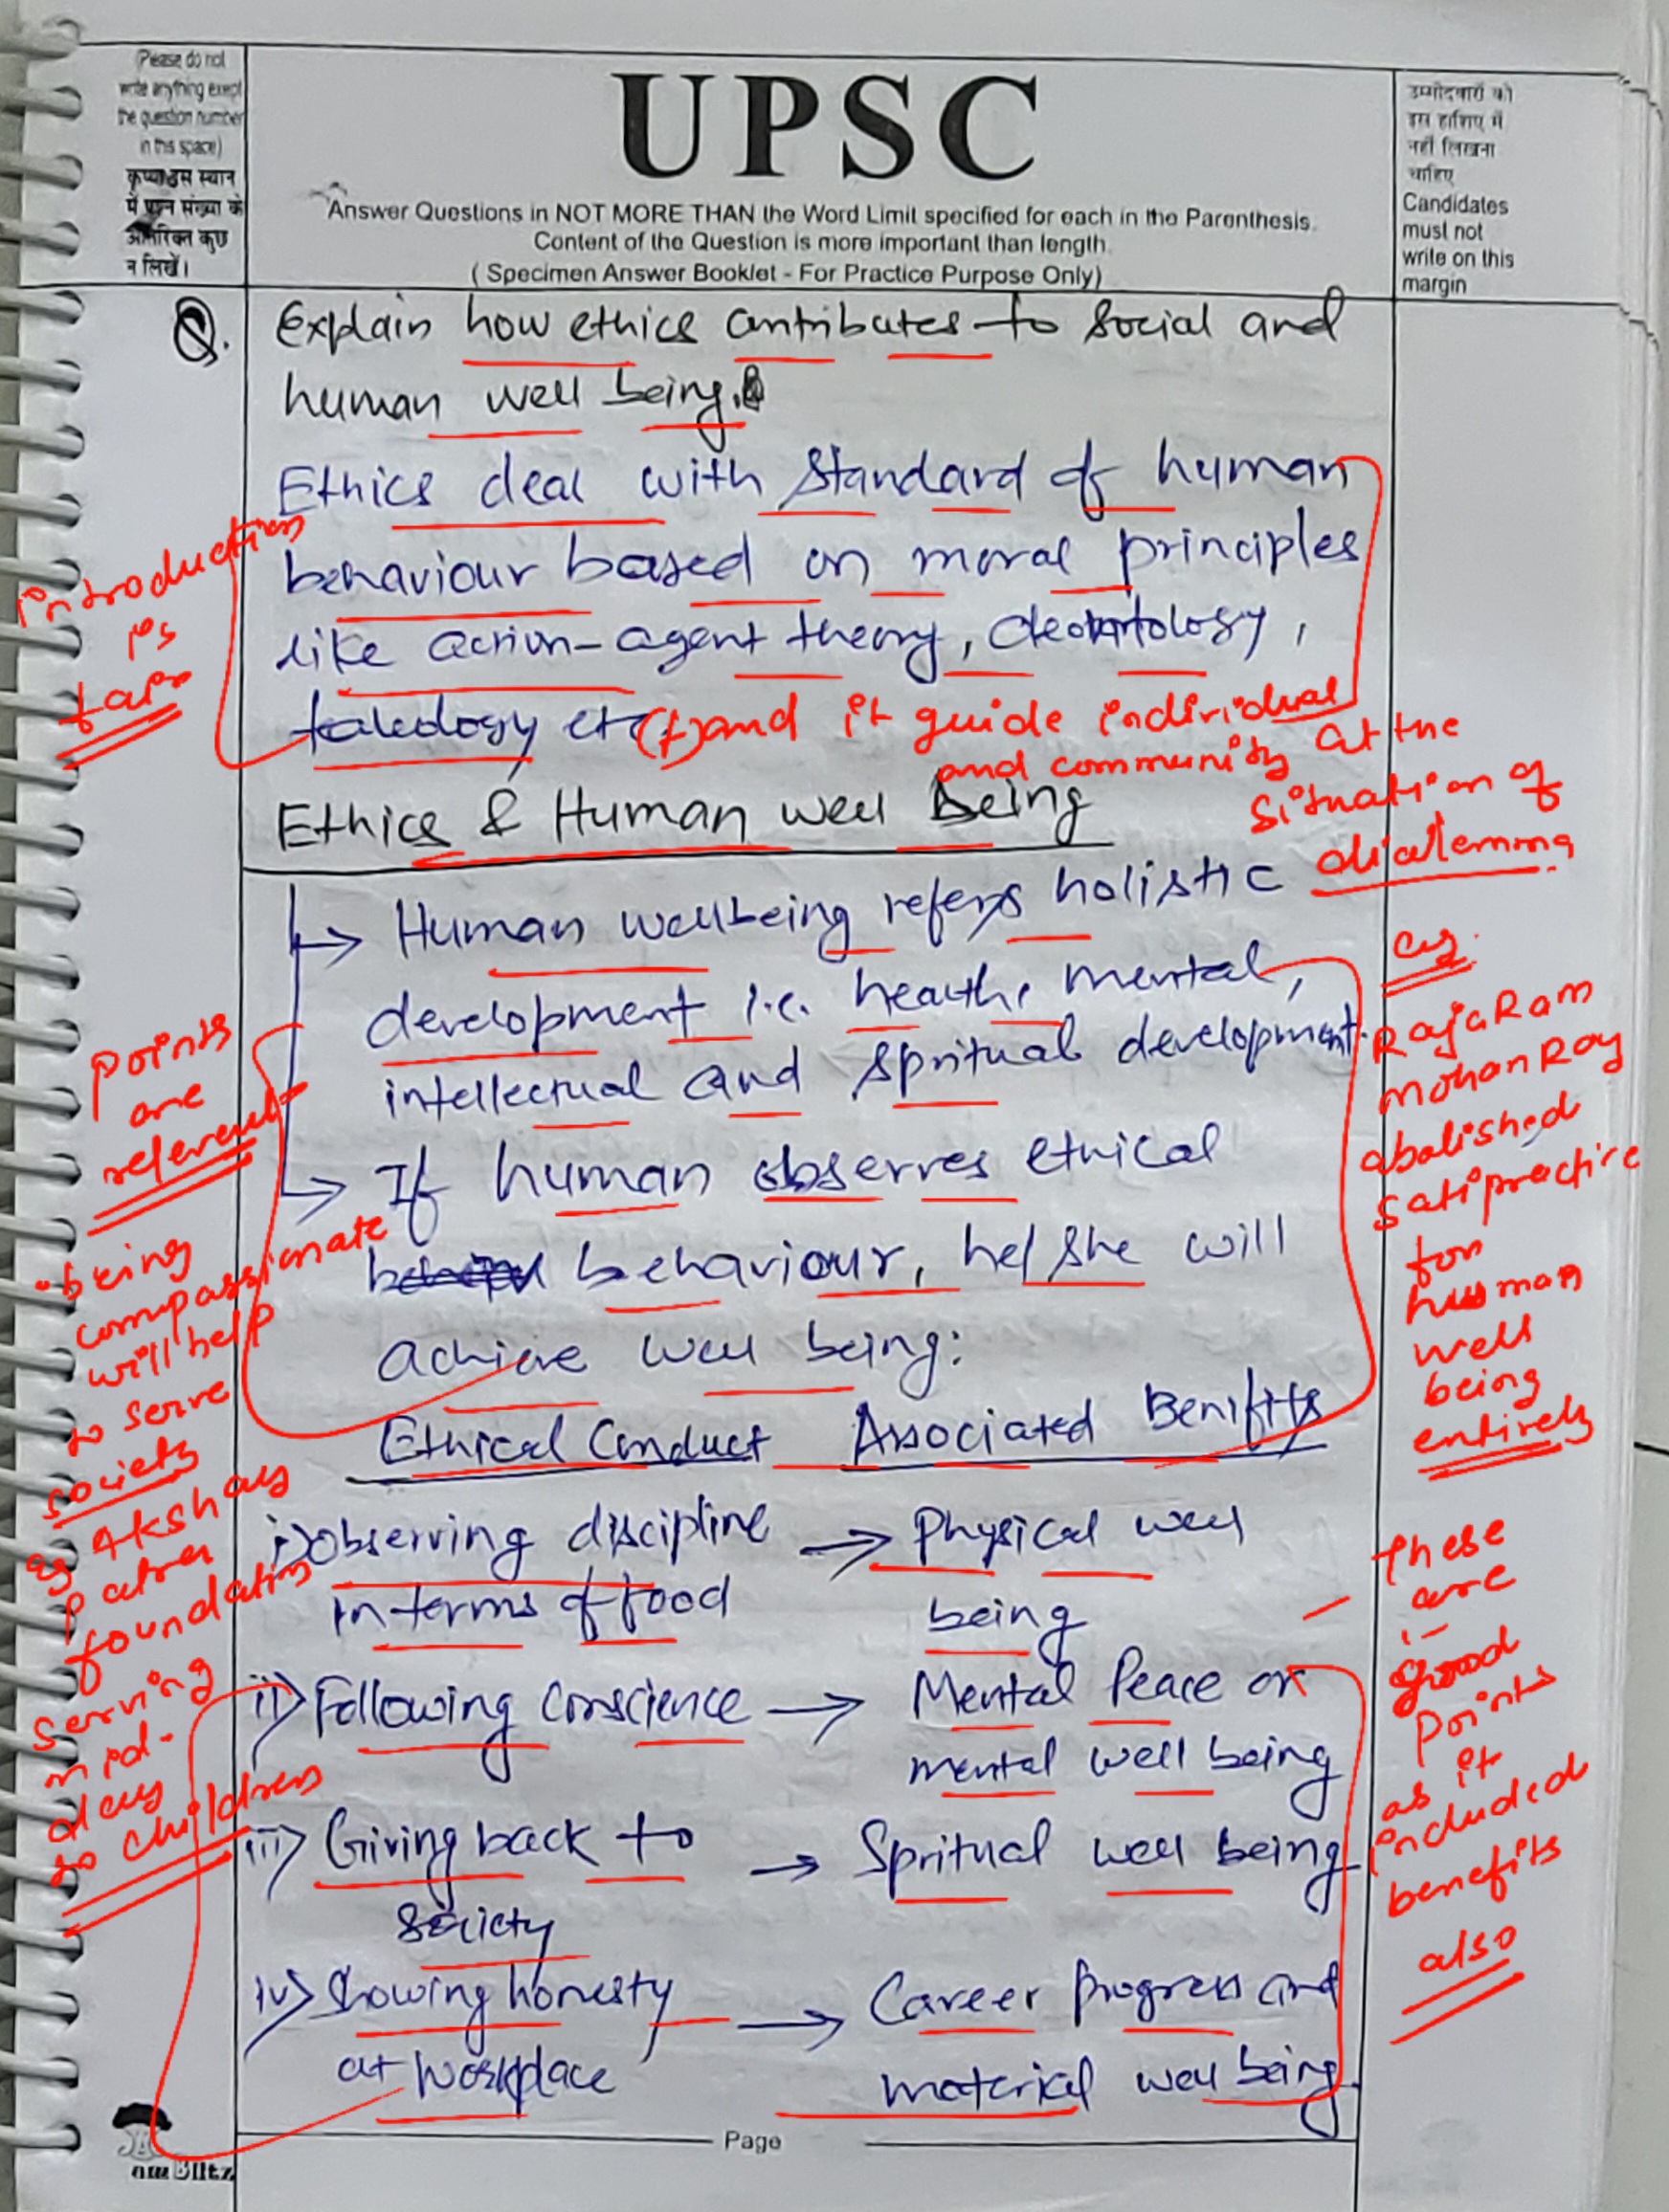 (Please do not
write anything exept
the question number
in this space)
कृप्या इस स्थान
में प्रश्न संख्या के
अतिरिक्त कुछ
न लिखें।
UPSC
Answer Questions in NOT MORE THAN the Word Limit specified for each in the Parenthesis.
Content of the Question is more important than length.
( Specimen Answer Booklet - For Practice Purpose Only)
उम्मीदवारों को
इस हाशिए में
नहीं लिखना
चाहिए
Candidates
must not
write on this
margin
Q. Explain how ethics contributes to social and
human well being.
Ethics deal with standard of human
behaviour based on moral principles
like action-agent theory, deontology,
etc. (+) and it guide individual
and community at the
situation of
introduction
is
fair
Ethics & Human well Being
→ Human wellbeing refers holistic
development i.e. health, mental,
intellectual and spritual development.
→ If human observes ethical
behaviour, he/she will
achieve well being:
eg.
RajaRam
mohanRoy
abolished
sati practice
for
human
well
being
entirely
points
are
relevent
"being
compassionate
will help
to serve
society
eg Akshay
patra
foundation
serving
mid-
day
to children
Ethical Conduct Associated Benifits
i) Observing discipline → Physical well
in terms of food being
ii) Following conscience → Mental Peace or
mental well being
iii) Giving back to → Spritual well being
society
iv) Showing honesty → Career Progress and
at workplace material well being.
these
are
good
points
as it
included
benefits
also
Page